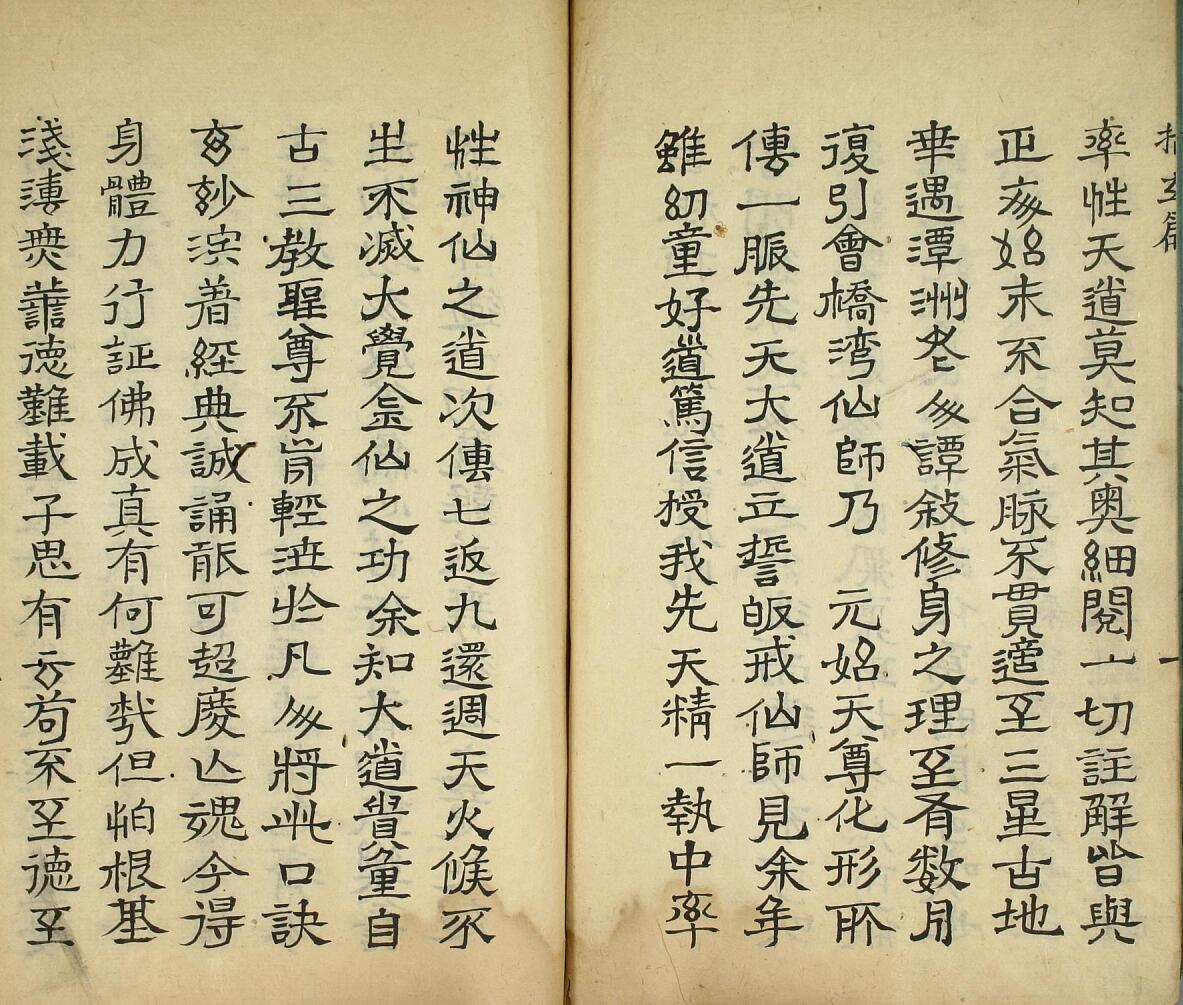 率性天道莫知其奥細閱一切註解皆與
正承始末不合氣脉不貫適至三星古地
幸遇潭洲老人譚敍修身之理至有数月
復引會橋湾仙師乃 元始天尊化形所
傳一脈先天大道立誓皈戒仙師見余年
雖幼童好道篤信授我先天精一執中率
性神仙之道次傳七返九還週天火候不
生不滅大覺金仙之功余知大道貴重自
古三教聖尊不肯輕泄於凡人將此口訣
玄妙深著經典誠誦能可超度亡魂今得
身體力行証佛成真有何難哉但怕根基
淺薄無靠德難載子思有云苟不至德至